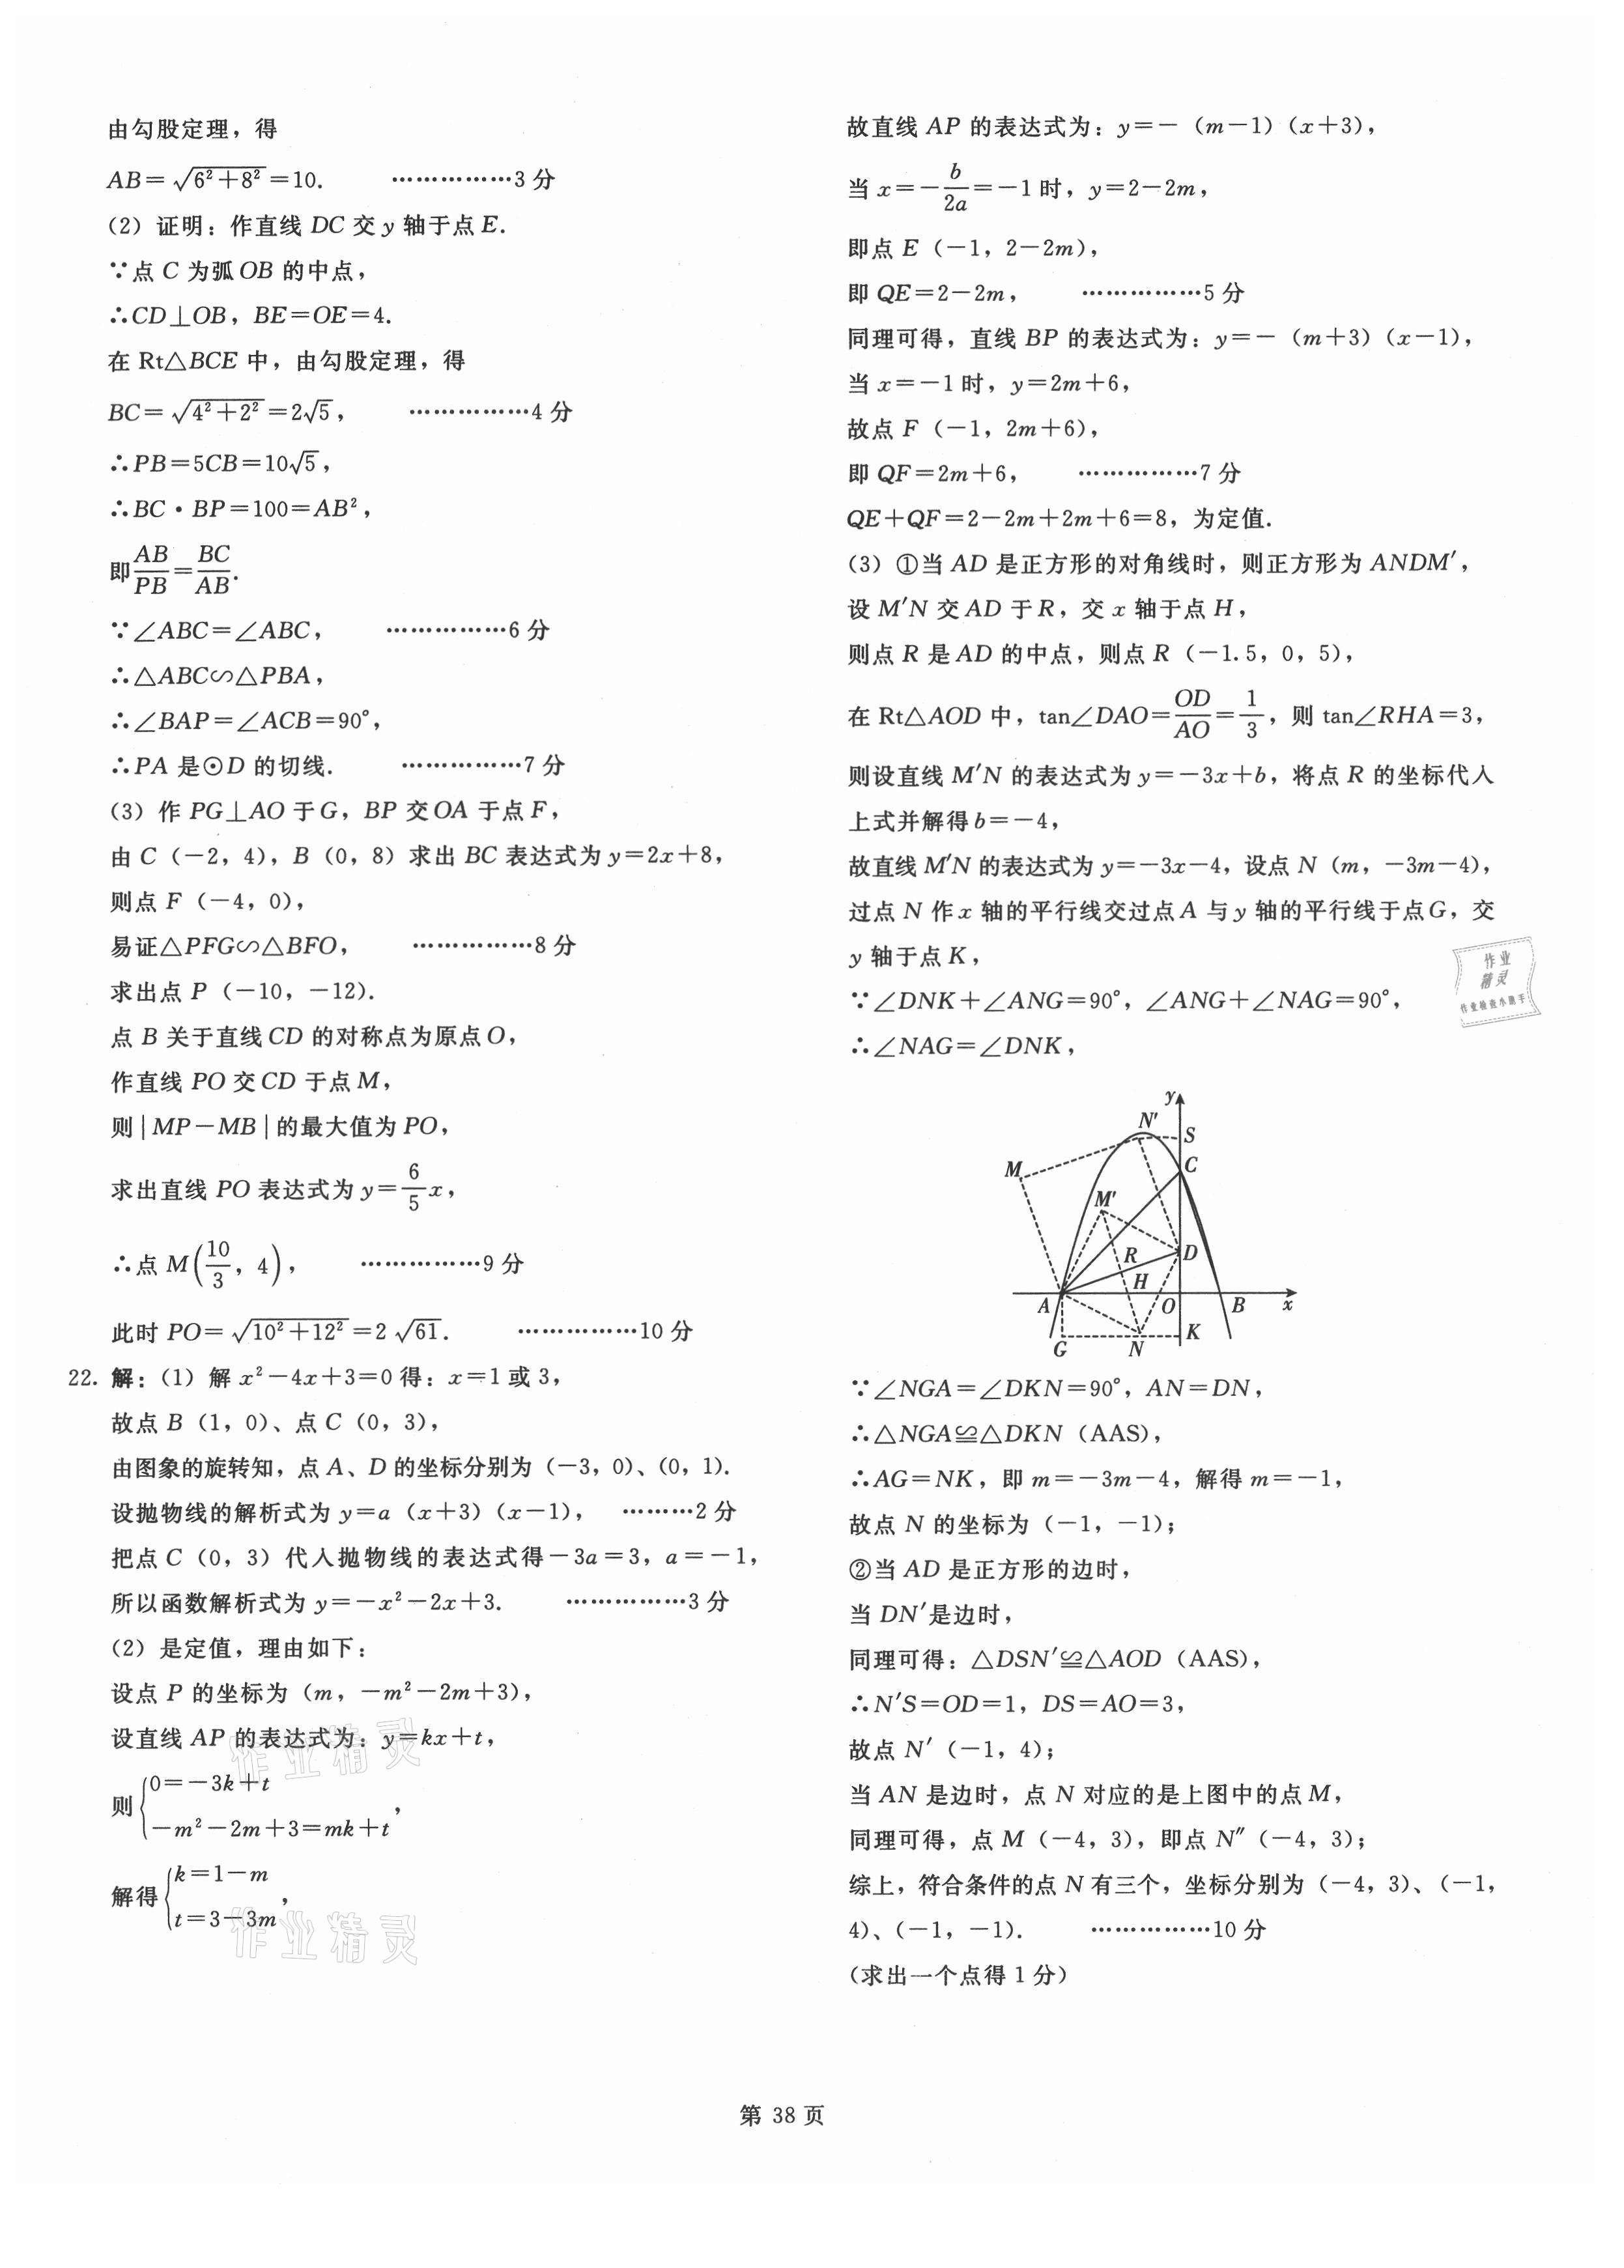 由勾股定理，得
AB=√(6²+8²)=10. ……………3 分
（2）证明：作直线 DC 交 y 轴于点 E.
∵点 C 为弧 OB 的中点，
∴CD⊥OB，BE=OE=4.
在 Rt△BCE 中，由勾股定理，得
BC=√(4²+2²)=2√5， ……………4 分
∴PB=5CB=10√5，
∴BC·BP=100=AB²，
即AB/PB=BC/AB.
∵∠ABC=∠ABC， ……………6 分
∴△ABC∽△PBA，
∴∠BAP=∠ACB=90°，
∴PA 是⊙D 的切线. ……………7 分
（3）作 PG⊥AO 于 G，BP 交 OA 于点 F，
由 C（-2，4），B（0，8）求出 BC 表达式为 y=2x+8，
则点 F（-4，0），
易证△PFG∽△BFO， ……………8 分
求出点 P（-10，-12）.
点 B 关于直线 CD 的对称点为原点 O，
作直线 PO 交 CD 于点 M，
则|MP-MB|的最大值为 PO，
求出直线 PO 表达式为 y=6/5x，
∴点 M(10/3，4)， ……………9 分
此时 PO=√(10²+12²)=2√61. ……………10 分
22. 解：（1）解 x²-4x+3=0 得：x=1 或 3，
故点 B（1，0）、点 C（0，3），
由图象的旋转知，点 A、D 的坐标分别为（-3，0）、（0，1）.
设抛物线的解析式为 y=a（x+3）（x-1）， ………2 分
把点 C（0，3）代入抛物线的表达式得-3a=3，a=-1，
所以函数解析式为 y=-x²-2x+3. ……………3 分
（2）是定值，理由如下：
设点 P 的坐标为（m，-m²-2m+3），
设直线 AP 的表达式为：y=kx+t，
则{0=-3k+t
-m²-2m+3=mk+t，
解得{k=1-m
t=3-3m，
作业精灵
作业精灵
故直线 AP 的表达式为：y=-（m-1）（x+3），
当 x=-b/2a=-1 时，y=2-2m，
即点 E（-1，2-2m），
即 QE=2-2m， ……………5 分
同理可得，直线 BP 的表达式为：y=-（m+3）（x-1），
当 x=-1 时，y=2m+6，
故点 F（-1，2m+6），
即 QF=2m+6， ……………7 分
QE+QF=2-2m+2m+6=8，为定值.
（3）①当 AD 是正方形的对角线时，则正方形为 ANDM′，
设 M′N 交 AD 于 R，交 x 轴于点 H，
则点 R 是 AD 的中点，则点 R（-1.5，0，5），
在 Rt△AOD 中，tan∠DAO=OD/AO=1/3，则 tan∠RHA=3，
则设直线 M′N 的表达式为 y=-3x+b，将点 R 的坐标代入
上式并解得 b=-4，
故直线 M′N 的表达式为 y=-3x-4，设点 N（m，-3m-4），
过点 N 作 x 轴的平行线交过点 A 与 y 轴的平行线于点 G，交
y 轴于点 K，
∵∠DNK+∠ANG=90°，∠ANG+∠NAG=90°，
∴∠NAG=∠DNK，
作业
精灵
作业检查小助手
y
N′
S
M
C
M′
R
D
H
A
O
B
x
G
N
K
∵∠NGA=∠DKN=90°，AN=DN，
∴△NGA≌△DKN（AAS），
∴AG=NK，即 m=-3m-4，解得 m=-1，
故点 N 的坐标为（-1，-1）；
②当 AD 是正方形的边时，
当 DN′是边时，
同理可得：△DSN′≌△AOD（AAS），
∴N′S=OD=1，DS=AO=3，
故点 N′（-1，4）；
当 AN 是边时，点 N 对应的是上图中的点 M，
同理可得，点 M（-4，3），即点 N″（-4，3）；
综上，符合条件的点 N 有三个，坐标分别为（-4，3）、（-1，
4）、（-1，-1）. ……………10 分
（求出一个点得 1 分）
第 38 页